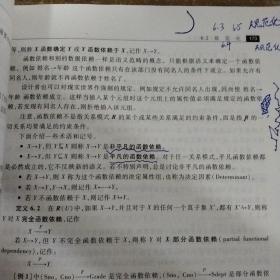 6.3 VS
6.4
6.2 规范化 173
等,则称 X 函数确定 Y 或 Y 函数依赖于 X,记作 X→Y。
函数依赖和别的数据依赖一样是语义范畴的概念。只能根据语义来确定一个函数依赖。
例如 姓名→年龄 这个函数依赖只有在该部门没有同名人的条件下成立。如果允许有
同名人,则年龄就不再函数依赖于姓名了。
设计者也可以对现实世界作强制的规定。例如规定不允许同名人出现,因而使 姓名→
年龄函数依赖成立。这样当插入某个元组时这个元组上的属性值必须满足规定的函数依
赖,若发现有同名人存在,则拒绝插入该元组。
注意,函数依赖不是指关系模式 R 的某个或某些关系满足的约束条件,而是指 R 的
一切关系均要满足的约束条件。
下面介绍一些术语和记号。
• X→Y,但 Y⊈X 则称 X→Y 是非平凡的函数依赖。
• X→Y,但 Y⊆X 则称 X→Y 是平凡的函数依赖。对于任一关系模式,平凡函数依赖都
是必然成立的,它不反映新的语义。若不特别声明,总是讨论非平凡的函数依赖。
• 若 X→Y,则 X 称为这个函数依赖的决定属性组,也称为决定因素(Determinant)。
• 若 X→Y,Y→X,则记作 X←→Y。
• 若 Y 不函数依赖于 X,则记作 X↛Y。
定义 6.2 在 R(U) 中,如果 X→Y,并且对于 X 的任何一个真子集 X′,都有 X′↛Y,则称
Y 对 X 完全函数依赖,记作
X F→ Y
若 X→Y,但 Y 不完全函数依赖于 X,则称 Y 对 X 部分函数依赖(partial functional
dependency),记作:
X P→ Y
[例 1] 中 (Sno, Cno) F→ Grade 是完全函数依赖,(Sno, Cno) P→ Sdept 是部分函数依